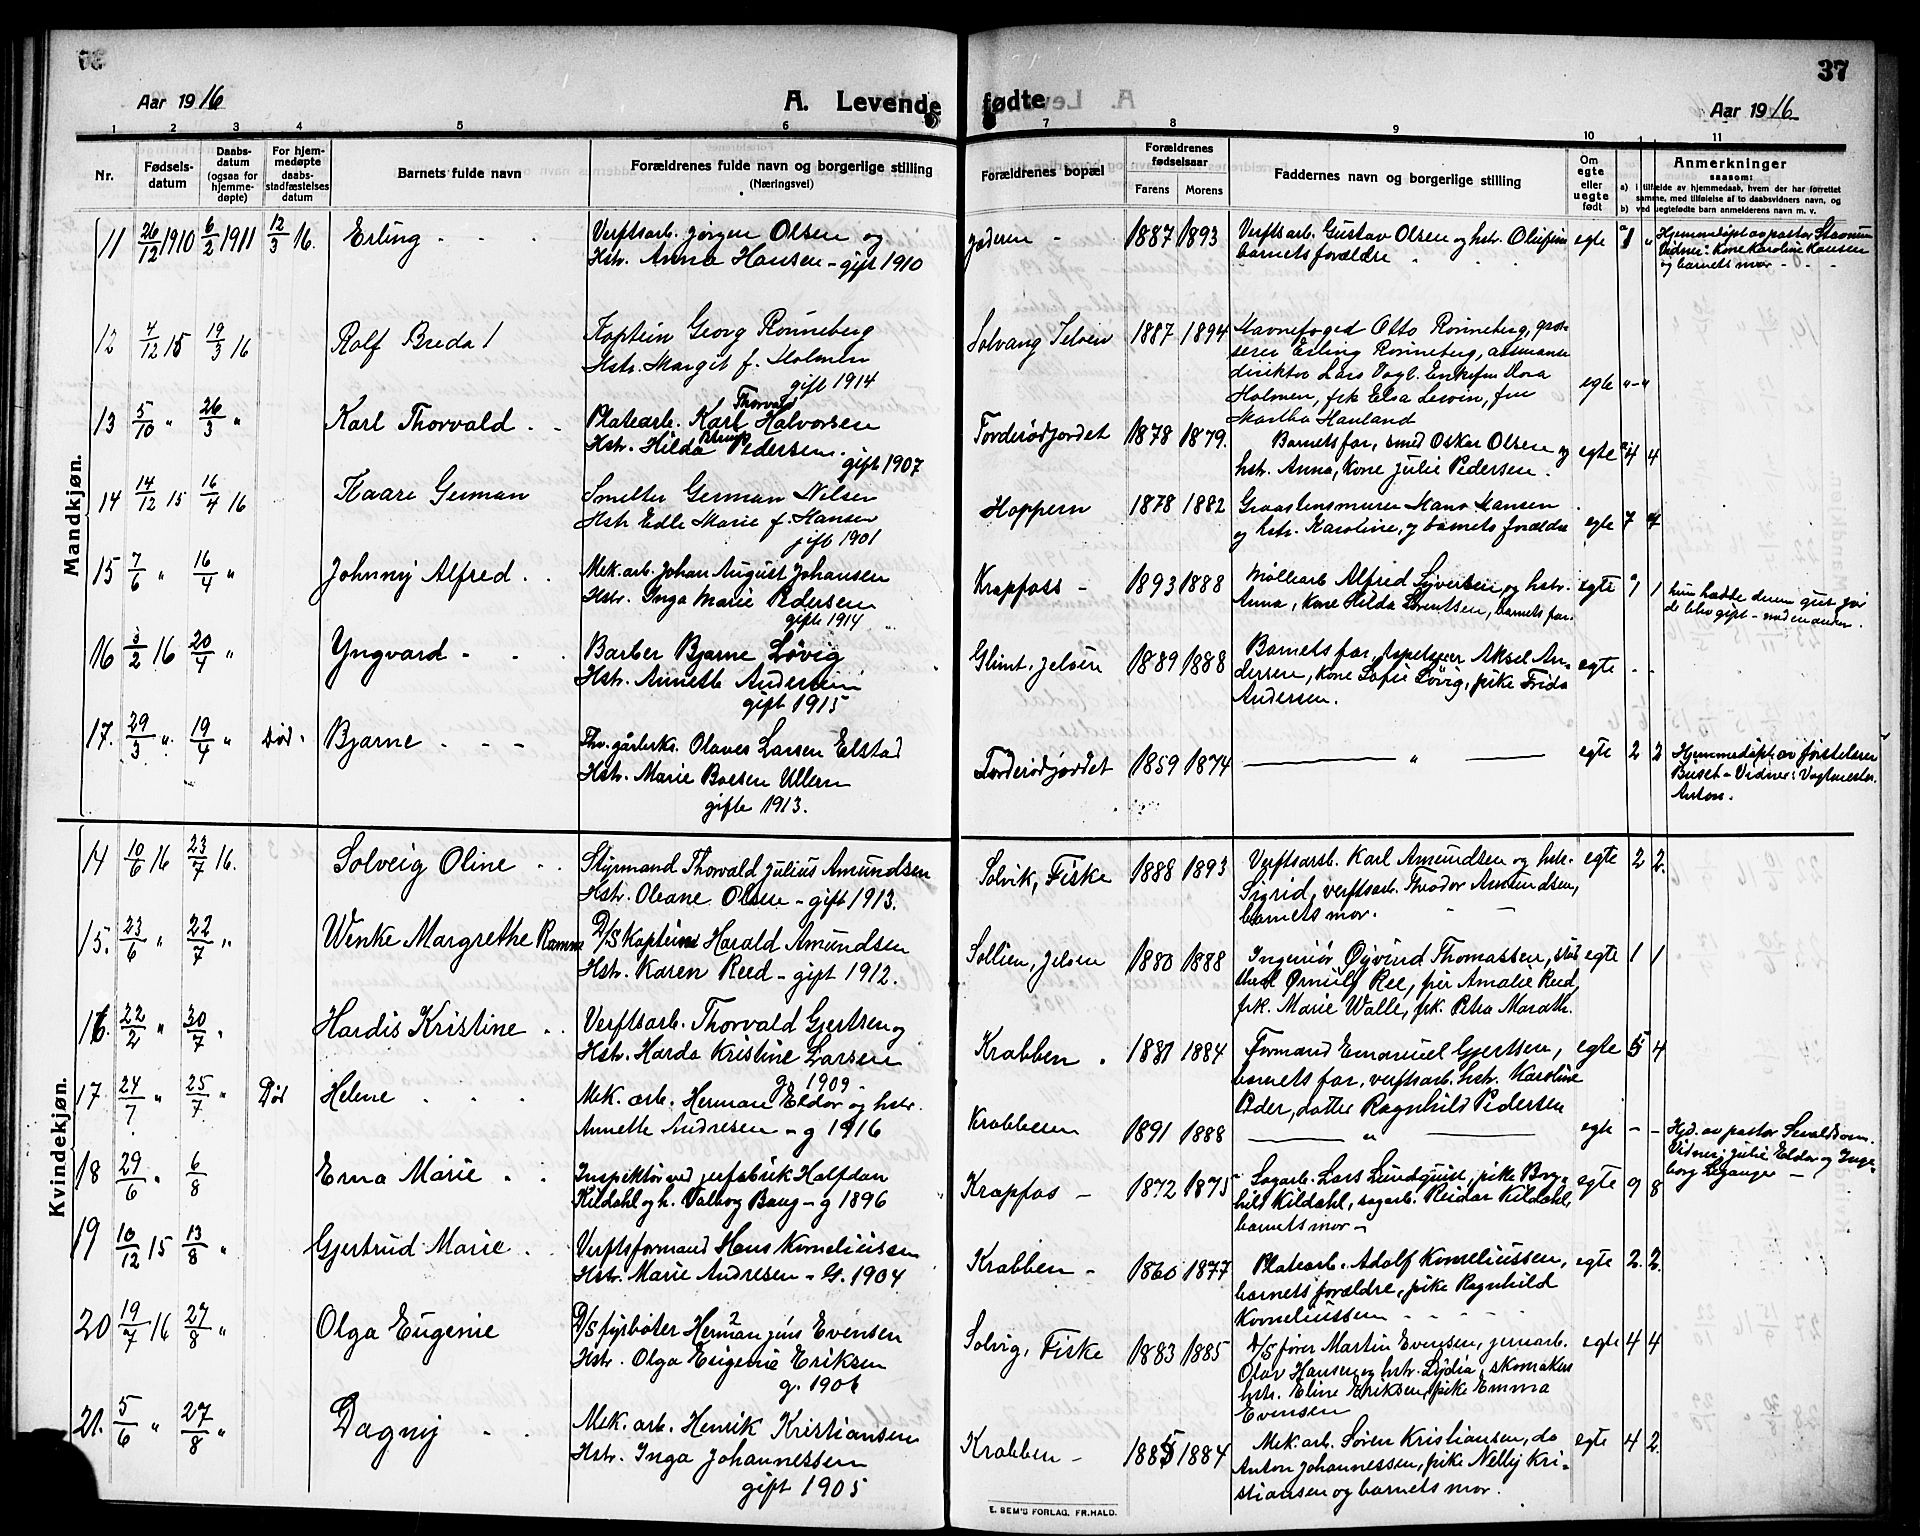 37
Aar 1916
A. Levende fødte
Aar 1916
1 2 3 4 5 6 7 8 9 10 11
Nr.
Fødsels-
datum
Daabs-
datum
(ogsaa for
hjemme-
døpte)
For hjem-
medøpte
daabs-
stadfæstelses
datum
Barnets fulde navn
Forældrenes fulde navn og borgerlige stilling
(Næringsvei)
Forældrenes bopæl
Forældrenes
fødselsaar
Farens Morens
Faddernes navn og borgerlige stilling
Om
egte
eller
uegte
født
Anmerkninger
saasom:
a) i tilfælde av hjemmedaab, hvem der har forrettet
samme, med tilføielse af to daabsvidners navn, og
b) ved uegtefødte barn anmelderens navn m. v.
Mandkjøn.
11 26/12 1910 6/2 1911 12/3 16. Erling
Verftsarb. Jørgen Olsen og
Hstr. Anna Hansen - gift 1910
1887 1893
Verftsarb. Gustav Olsen og hstr. Olufine
barnets forældre
egte 1 "
Hjemmedøpt av pastor
Vidner: Kone Karoline Hansen
og barnets mor
12 4/12 15 19/3 16 Rolf Bredal
Kaptein Georg Rønneberg
Hstr. Margit f. Holmen
gift 1914
Solvang Jeløen 1887 1894
Havnefoged Otto Rønneberg, gros-
serer Erling Rønneberg,
direktør Lars Vogl. Enkefru Nora
Holmen, frk Elsa Lewin, fru
Martha Hauland
egte " - "
13 5/10 " 26/3 " Karl Thorvald
Platearb. Karl Thorvald Halvorsen
Hstr. Hilda Pedersen.
gift 1907
Torderødjordet 1878 1879.
Barnets far, smed Oskar Olsen og
hstr. Anna, Kone Julie Pedersen.
egte 4 4
14 14/12 15 16/4 16 Kaare German
Smelter German Nilsen
Hstr Edle Marie f. Hansen
gift 1901
Hoppern 1878 1882
Graastensmurer Hans Hansen
og hstr. Karoline, og barnets forældre
egte 7 7
15 7/6 " 16/4 " Johnny Alfred
Mek. arb. Johan August Johansen
Hstr. Inga Marie Pedersen
gifte 1914
Krapfoss - 1893 1888
Møllearb Alfred Syversen og hstr.
Anna, Kone Hilda Lorentsen, barnets far.
egte 1 1
hun hadde
de blev gift
16 3/2 16 20/4 " Yngvard
Barber Bjarne Løvig
Hstr. Annette Andersen
gift 1915
Glimt, Jeløen 1889 1888
Barnets far, tapetserer Aksel An-
dersen, kone Sofie Løvig, pike Frida
Andersen.
egte - -
17. 29/3 " 19/4 " Død. Bjarne
Olaves Larsen Elstad
Hstr. Marie Boesen Ullern
gifte 1913.
Torderødjordet 1859 1874
egte 2 2
Hjemmedøpt av
Buset - Vidner: Vagtmester
Anton.
Kvindekjøn.
14 10/6 16 23/7 16. Solveig Oline
Styrmand Thorvald Julius Amundsen
Hstr. Oleane Olsen - gift 1913.
Solvik, Fiske 1888 1893
Verftsarb. Karl Amundsen og hstr.
Sigrid, verftsarb. Theodor Amundsen,
barnets mor.
egte 2 2.
15. 23/6 " 22/7 " Wenke Margrethe Ramm
D/S Kaptein Harald Amundsen
Hstr. Karen Reed - gift 1912.
Sollien, Jeløen 1880 1888
Ingeniør Øyvind Thomassen,
Ørnulf Ree, fru Amalie Reed,
frk. Marie Walle, frk. Petra
egte 1 1
16 22/2 " 30/7 " Hardis Kristine
Verftsarb. Thorvald Gjertsen og
Hstr. Harda Kristine Larsen
g. 1909 -
Krabben 1881 1884
Formand Emanuel Gjertsen,
barnets far, verftsarb. hstr. Karoline
Peder, datter Ragnhild Pedersen
egte 5 4
17. 24/7 " 25/7 " Død Helene
Mek. arb. Herman Eldor og hstr.
Annette Andresen - g 1916
Krabben 1891 1888
egte - -
Hjd. av pastor
Vidner: Julie Eldor og Inge-
borg
18 29/6 " 6/8 Erna Marie
Inspektør ved jerfabrik Halfdan
Kildahl og h. Valborg Baug - g 1896
Krapfos - 1872 1875
Sagarb. Lars Lundquist, pike Borg-
hild Kildahl, sagarb. Reidar Kildahl,
barnets mor -
egte 9 8
19 10/12 15 13/8 " Gjertrud Marie
Verftsformand Hans Korneliussen
Hstr. Marie Andresen - G. 1904
Krabben - 1860 1877
Platearb. Adolf Korneliussen,
barnets forældre, pike Ragnhild
Korneliussen
egte 2. 2.
20 19/7 16 27/8 " Olga Eugenie
D/S fyrbøter Herman Jens Evensen
Hstr. Olga Eugenie Eriksen
g. 1906
Solvig, Fiske 1883 1885
D/S fører Martin Evensen, jernarb.
Olav Hansen og hstr. Lydia, skomaker
hstr. Eline Eriksen, pike Emma
Evensen
egte 4 4
21. 5/6 " 27/8 " Dagny
Mek. arb. Henrik Kristiansen
Hstr. Inga Johannessen
gift 1905
Krabben - 1885 1884
Mek. arb. Søren Kristiansen, do
Anton Johannessen, pike Nelly Kri-
stiansen og barnets mor.
egte 4 2.
E. SEM'S FORLAG. FR.HALD.